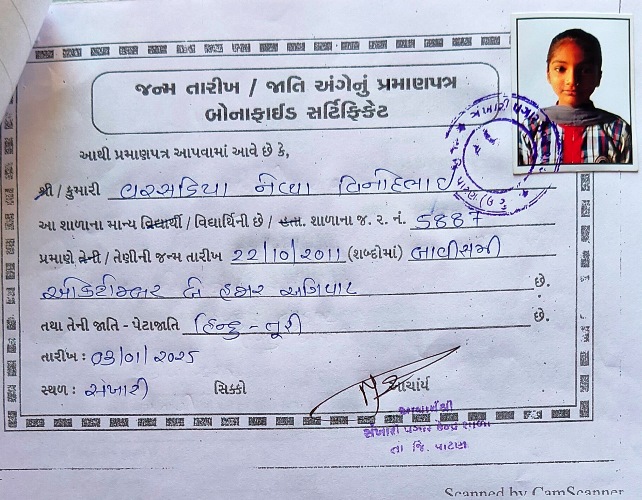 જન્મ તારીખ / જાતિ અંગેનું પ્રમાણપત્ર
બોનાફાઈડ સર્ટિફિકેટ
આથી પ્રમાણપત્ર આપવામાં આવે છે કે,
શ્રી / કુમારી વરસડિયા નવ્યા વિનોદભાઈ
આ શાળાના માન્ય વિદ્યાર્થી / વિદ્યાર્થિની છે / હતા. શાળાના જ. ર. નં. 5887
પ્રમાણે તેની / તેણીની જન્મ તારીખ 22/10/2011 (શબ્દોમાં) બાવીસમી
ઓક્ટોમ્બર બે હજાર અગિયાર છે.
તથા તેની જાતિ - પેટાજાતિ હિન્દુ - તૂરી છે.
તારીખ : 03/01/2025
સ્થળ : સંખારી સિક્કો આચાર્ય
આચાર્યશ્રી
સંખારી પગાર કેન્દ્ર શાળા
તા જિ. પાટણ
Scanned by CamScanner